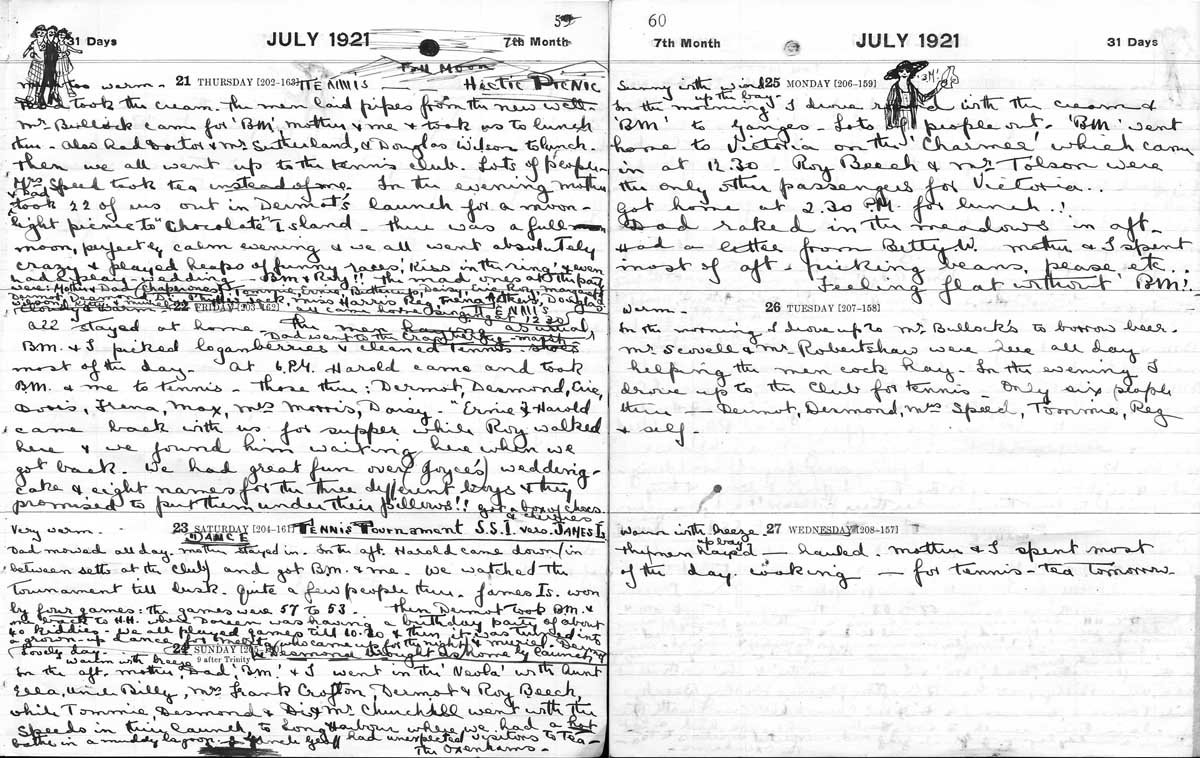 59
31 Days
JULY 1921
7th Month
Full Moon
21 THURSDAY [202-163]
TENNIS
Hectic Picnic
too warm -
took the cream. The men laid pipes from the new well.
Mr Bullock came for 'BM', mother & me & took us to lunch
there - Also had Doctor & Mrs Sutherland, & Douglas Wilson to lunch.
Then we all went up to the tennis club. Lots of people
Mrs Speed took tea instead of me. In the evening mother
& Dad
took 22 of us out in Dermot's launch for a moon-
light picnic to "Chocolate" Island - there was a full
moon, perfectly calm evening & we all went absolutely
crazy & played heaps of funny races, 'Kiss in the ring' & even
had a wedding - BM & Reg!! The mad ones at the party
were: Mother & Dad (chaperones)
all came home 12.30
22 FRIDAY [203-162]
TENNIS
all stayed at home - The men as usual
Dad went to the
BM. & I picked loganberries & cleaned tennis - shoes
most of the day. At 6 P.M. Harold came and took
BM. & me to tennis - Those there: Dermot, Desmond, Eric,
Doris, Irena, Max, Mrs Morris, Darcy - "Ernie & Harold
came back with us for supper while Roy walked
here & we found him waiting here when we
got back. We had great fun over (Joyce's) wedding-
cake & eight names for the three different boys & they
promised to put them under their pillows!! got a box of chocs.
& cherries
23 SATURDAY [204-161]
Very warm.
"DANCE
TENNIS Tournament S.S.I. vers. JAMES Is
Dad mowed all day. Mother stayed in. In the aft. Harold came down (in
between setts at the Club) and got BM. & me. We watched the
Tournament till dusk. Quite a few people there. James Is. won
by four games: the games were 57 to 53. Then Dermot took BM. &
me to H.H. where Doreen was having a birthday party of about
40 kiddies. We all played games till 10.30 & then it was turned into
a grown-up dance
Desmond brought us home by launch
24 SUNDAY
9 after Trinity
Lovely day.
warm with breeze
In the aft. mother, Dad, 'BM.' & I went in the 'Neola' with Aunt
Essa, Uncle Billy, Mrs Frank Crofton, Dermot & Roy Beech,
while Tommie Desmond & Di & Mr Churchill went with the
Speeds in their launch to Long Harbour where we had a hot
bathe in a muddy lagoon. & Uncle Geoff had unexpected visitors to Tea -
The Oxenhams -
60
7th Month
JULY 1921
31 Days
25 MONDAY [206-159]
'BM'
Sunny with wind
up the bay-
In the morning I drove with the cream &
'BM' to Ganges - Lots of people out. 'BM' went
home to Victoria on the 'Charmer' which came
in at 12.30 - Roy Beech & Mr Tolson were
the only other passengers for Victoria..
Got home at 2.30 P.M. for lunch..!
Dad raked in the meadows in aft.
Had a letter from Betty W. Mother & I spent
most of aft. picking beans, pease, etc.
Feeling flat without BM!.
26 TUESDAY [207-158]
Warm -
In the morning I drove up to Mr Bullock's to borrow beer.
Mr Scovell & Mr Robertshaw were here all day
helping the men cock hay - In the evening I
drove up to the Club for tennis - Only six people
there - Dermot, Desmond, Mrs Speed, Tommie, Reg
& self -
27 WEDNESDAY [208-157]
Warm with breeze
up bay-
The men - hauled. Mother & I spent most
of the day cooking - for tennis-tea tomorrow.